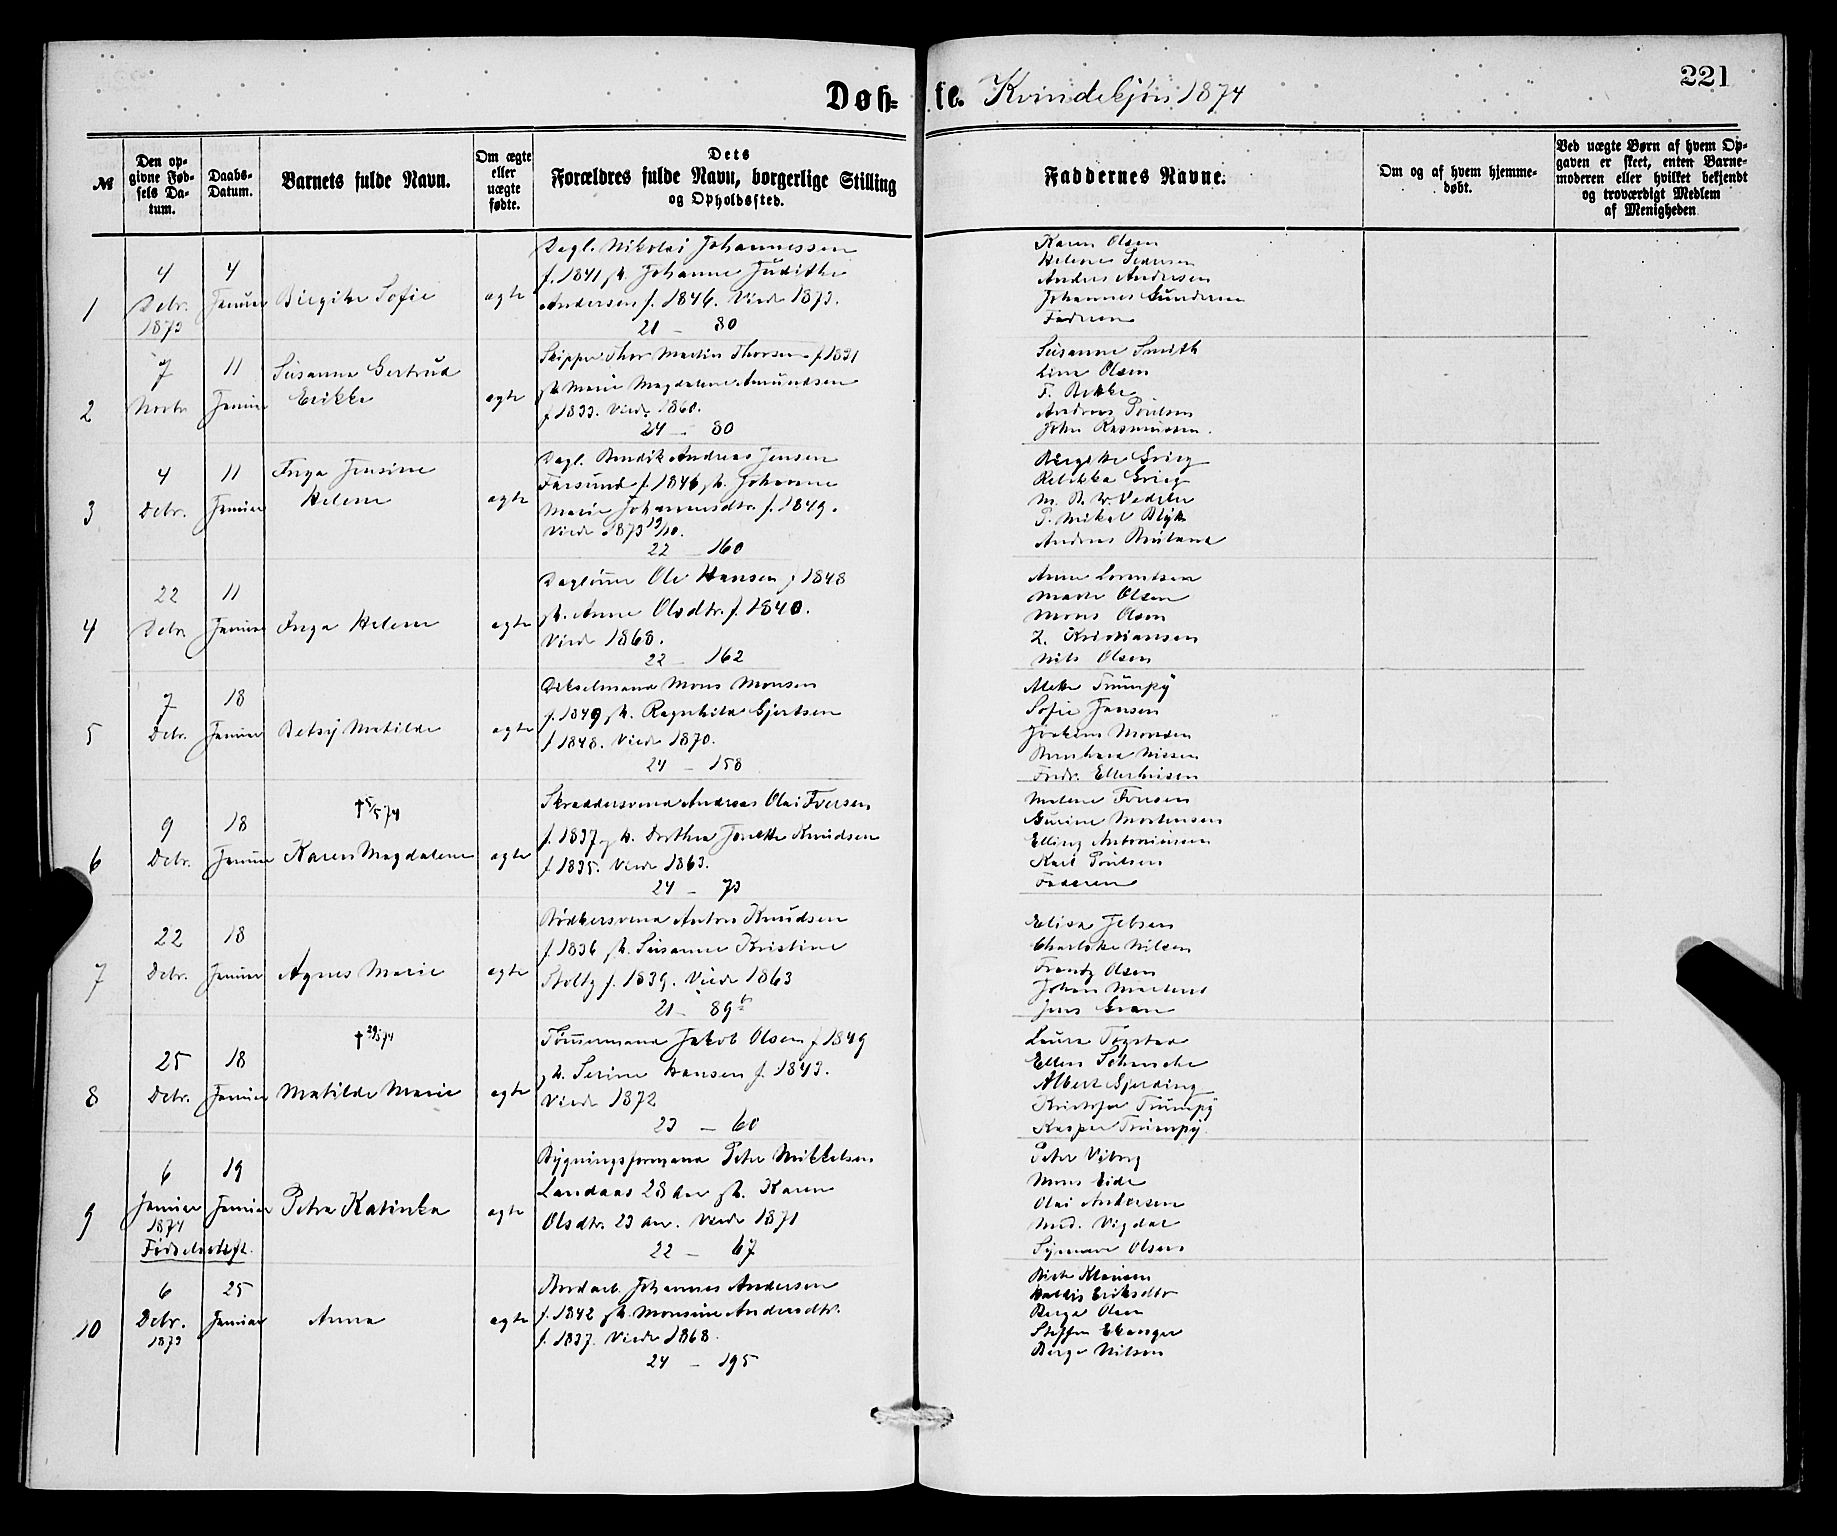 221
Døb= te. Kvindekjøn 1874
№
Den op-
givne Fød-
sels Da-
tum.
Daabs-
Datum.
Barnets fulde Navn.
Om ægte
eller
uægte
fødte.
Dets
Forældres fulde Navn, borgerlige Stilling
og Opholdssted.
Faddernes Navne.
Om og af hvem hjemme-
døbt.
Ved uægte Børn af hvem Op-
gaven er skeet, enten Barne-
moderen eller hvilket bekjendt
og troværdigt Medlem
af Menigheden
1
4
Debr.
1873
4
Januar
Birgitte Sofie
ægte
Dagl. Nikolai Johannessen
f. 1841 h. Johanne Judithe
Andersen f. 1846. Viede 1873.
21 – 80
Karen Olsen
Helene Pedersen
Anders Andersen
Johannes Gundersen
Faderen
2
7
Novbr
11
Januar
Susanna Gertrud
Erikke
ægte
Skipper Thor Martin Thorsen f 1831
h. Marie Magdalene Amundsen
f 1833. Viede 1860.
24 – 80
Susanne Smith
Line Olsen
Andreas Poulsen
John Rasmussen.
3
4
Debr.
11
Januar
Inga Jensine
Helene
ægte
Dagl. Bendik Andreas Jensen
Farsund f. 1846 h. Johanne
Marie Johannesdtr. f. 1849.
Viede 1873 19/10.
22 – 160
Birgitte Grieg
Rebekka Grieg
P. Mikal Blyk
Andreas
4
22
Debr
11
Januar
Inga Helene
ægte
Dagleiner Ole Hansen f 1848
h. Anne Olsdtr. f. 1840.
Viede 1868.
22 – 162
Anne Lorentsen
Marte Olsen
Mons Olsen
Z. Kristiansen
Nils Olsen
5
7
Debr.
18
Januar
Betsy Matilde
ægte
Dikselmand Mons Monsen
f. 1849 h. Ragnhilda Gjertsen
f 1848. Viede 1870.
24 – 158
Alette Trumpy
Sofie Jansen
Joakim Monsen
Nissen
Fredr. Ellerhusen
6
9
Debr.
18
Januar
†5/5 74
Karen Magdalene
ægte
Skræddersvend Andreas Olai Iversen
f. 1837 h. Dorthea Jonette Knudsen
f 1835. Viede 1863.
24 – 73
Malene Iversen
Gurine Mortensen
Elling Antoniussen
Karl Poulsen
Faderen
7
22
Debr.
18
Januar
Agnes Marie
ægte
Bødkersvend Anton Knudsen
f. 1836 h. Susanne Kristine
Stoltz f. 1839. Viede 1863
21 – 89b
Elisa Jebsen
Charlotte Nilsen
Frantz Olsen
Johan Martens
Jens Gran
8
25
Debr.
18
Januar
†29/5 74
Matilde Marie
ægte
Tømmermand Jakob Olsen f 1849
h. Serine Hansen f. 1843.
Viede 1872
23 – 60
Laura
Ellen
Albert Gjerding
Kristofer Trumpy
Kasper Trumpy.
9
6
Januar
1874
Fødselsattest.
19
Januar
Petra Katinka
ægte
Bygningsformand Peter Mikkelsen
Landaas 28 Aar h. Karen
Olsdtr. 23 Aar. Viede 1871
22 – 67
Peter Viborg
Mons Eide
Olai Andersen
Md. Vigdal
Synneve Olsen
10
6
Debr.
1873
25
Januar
Anna
ægte
Bordarb. Johannes Andersen
f. 1842 h. Monsine Andersdtr.
f. 1837. Viede 1868.
24 – 195
Birte Klausen
Valdis Eriksdtr
Børge Olsen
Steffen Ekanger
Børge Nilsen